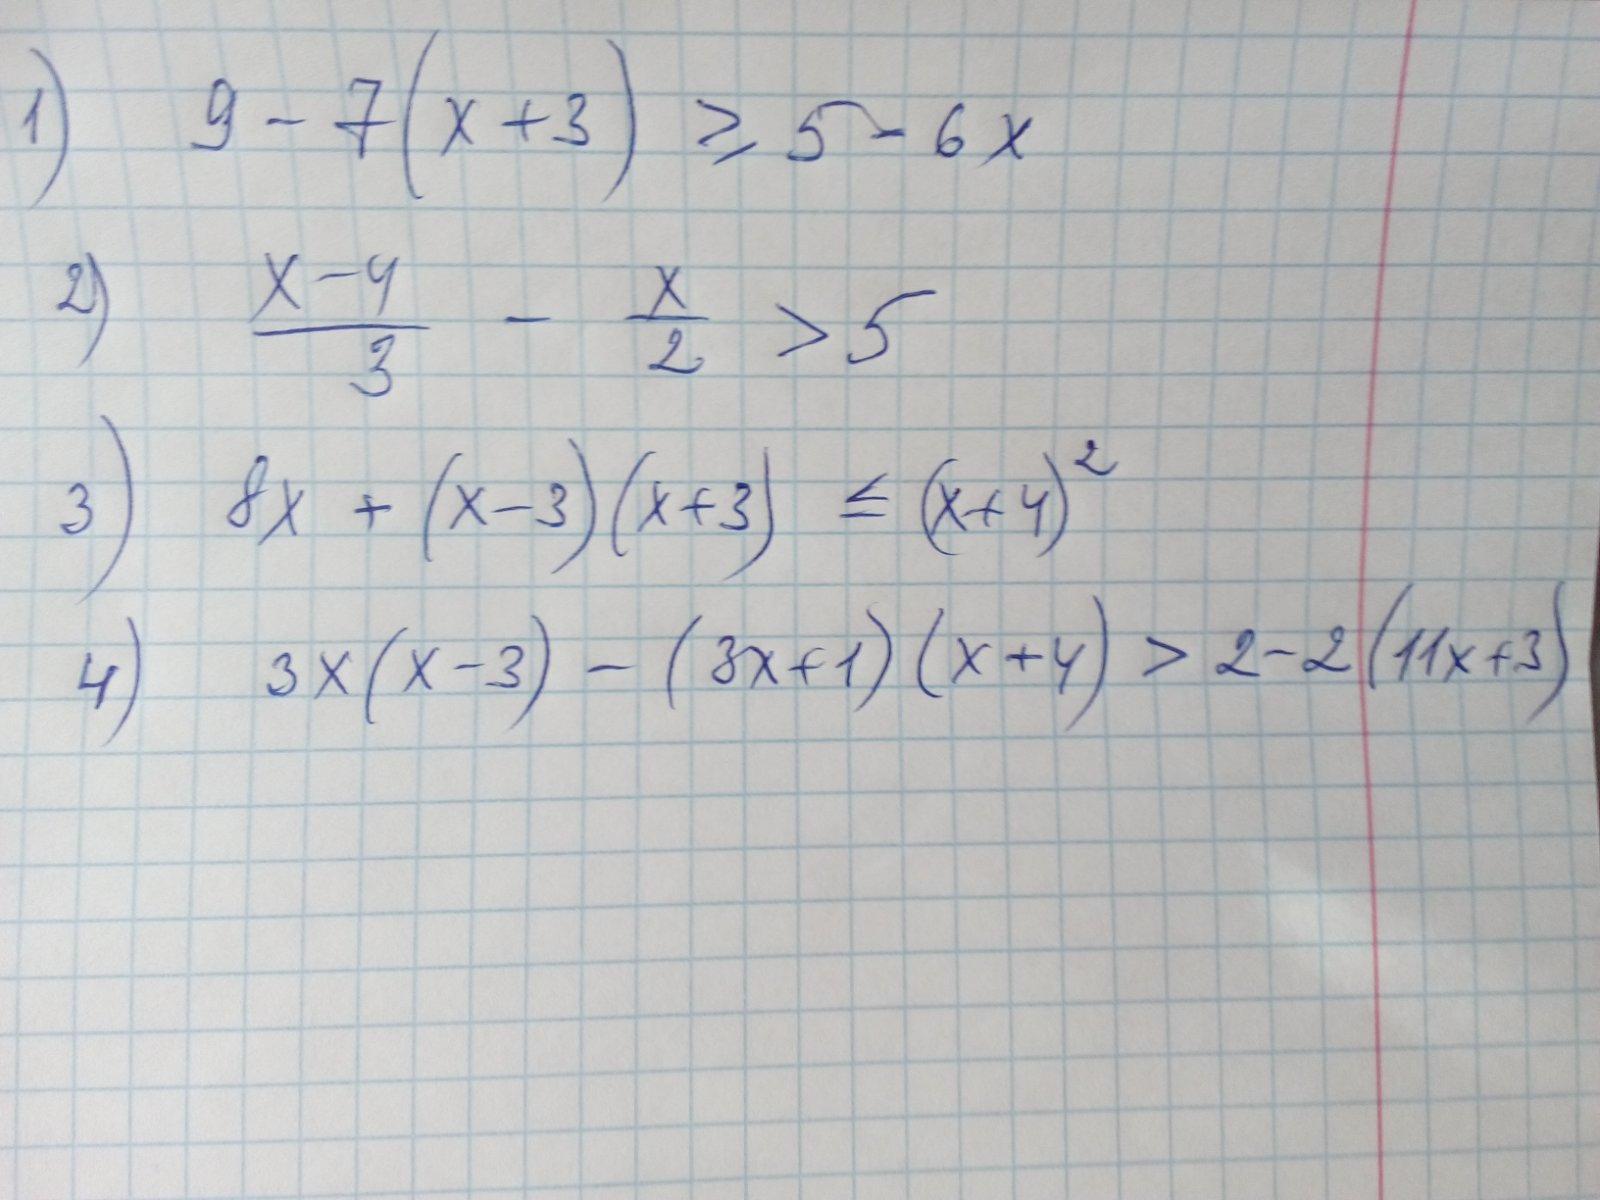 1) 9 - 7(x+3) ≥ 5 - 6x
2) (x-4)/3 - x/2 > 5
3) 8x + (x-3)(x+3) ≤ (x+4)²
4) 3x(x-3) - (3x+1)(x+4) > 2-2(11x+3)